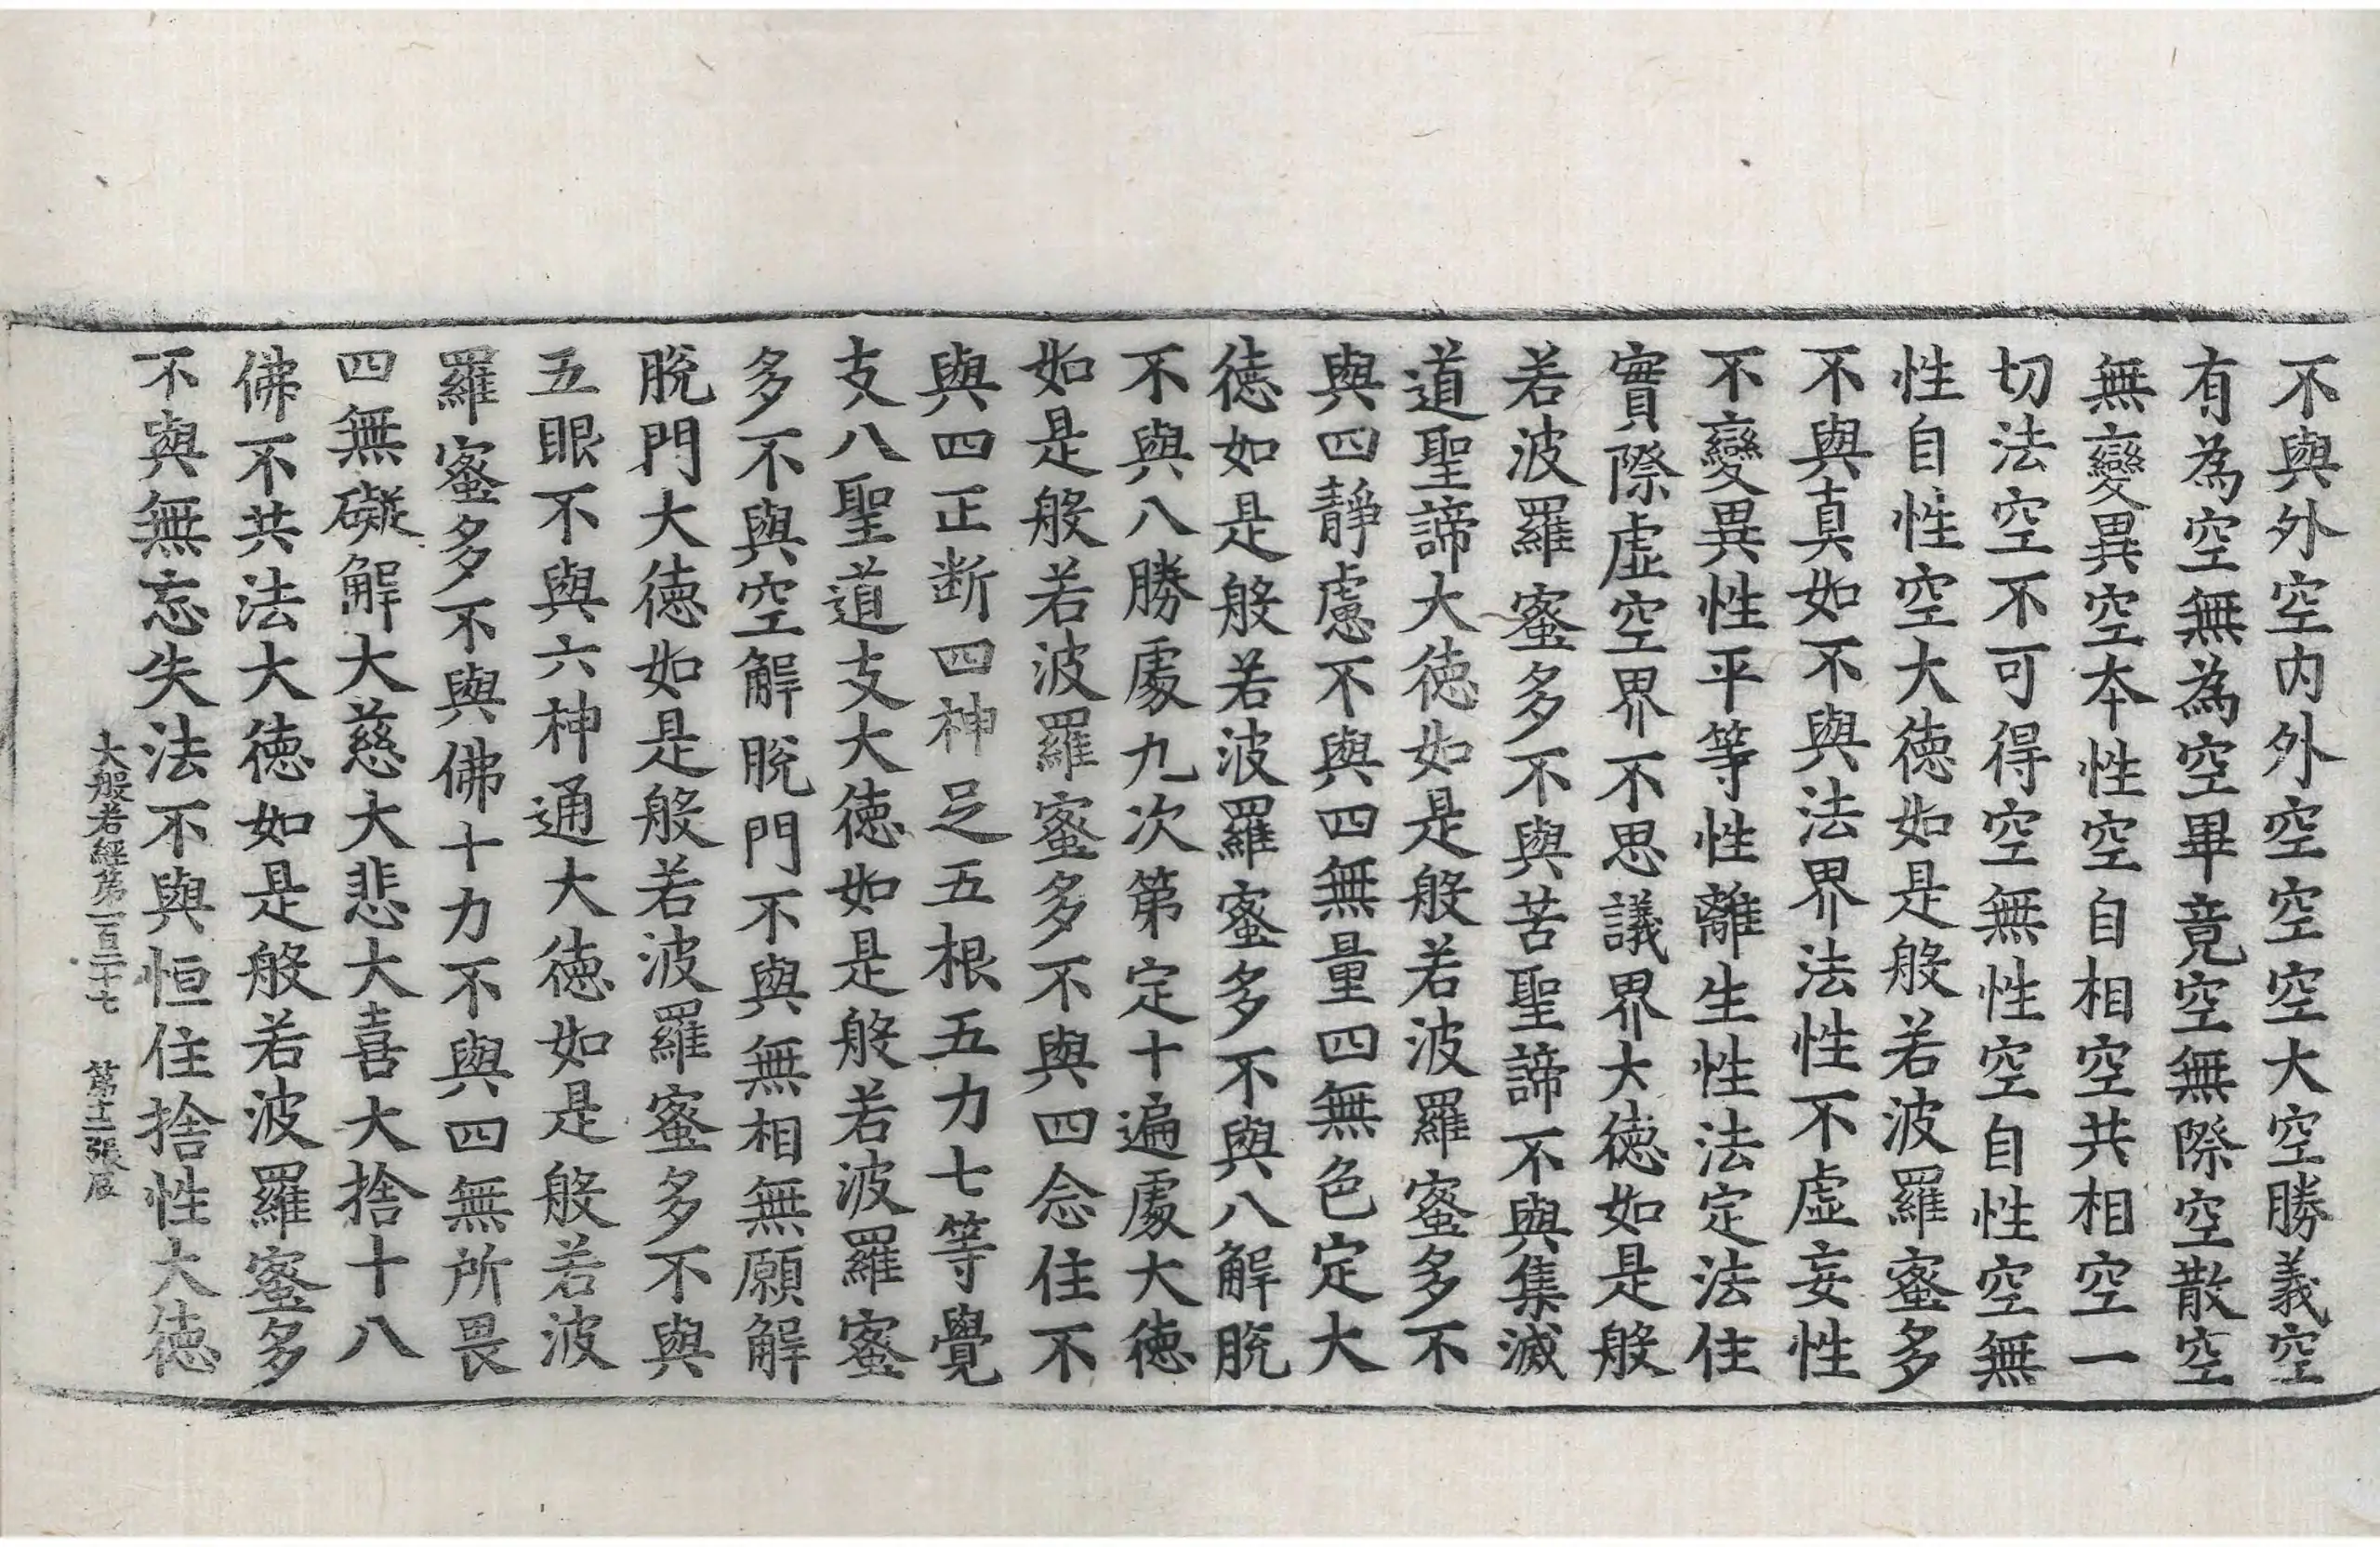 不與外空内外空空空大空勝義空
有為空無為空畢竟空無際空散空
無變異空本性空自相空共相空一
切法空不可得空無性空自性空無
性自性空大徳如是般若波羅蜜多
不與真如不與法界法性不虛妄性
不變異性平等性離生性法定法住
實際虛空界不思議界大徳如是般
若波羅蜜多不與苦聖諦不與集滅
道聖諦大徳如是般若波羅蜜多不
與四靜慮不與四無量四無色定大
徳如是般若波羅蜜多不與八解脫
不與八勝處九次第定十遍處大徳
如是般若波羅蜜多不與四念住不
與四正断四神足五根五力七等覺
支八聖道支大徳如是般若波羅蜜
多不與空解脫門不與無相無願解
脫門大徳如是般若波羅蜜多不與
五眼不與六神通大徳如是般若波
羅蜜多不與佛十力不與四無所畏
四無礙解大慈大悲大喜大捨十八
佛不共法大徳如是般若波羅蜜多
不與無忘失法不與恒住捨性大徳
大般若經第一百二十七 第十二張辰